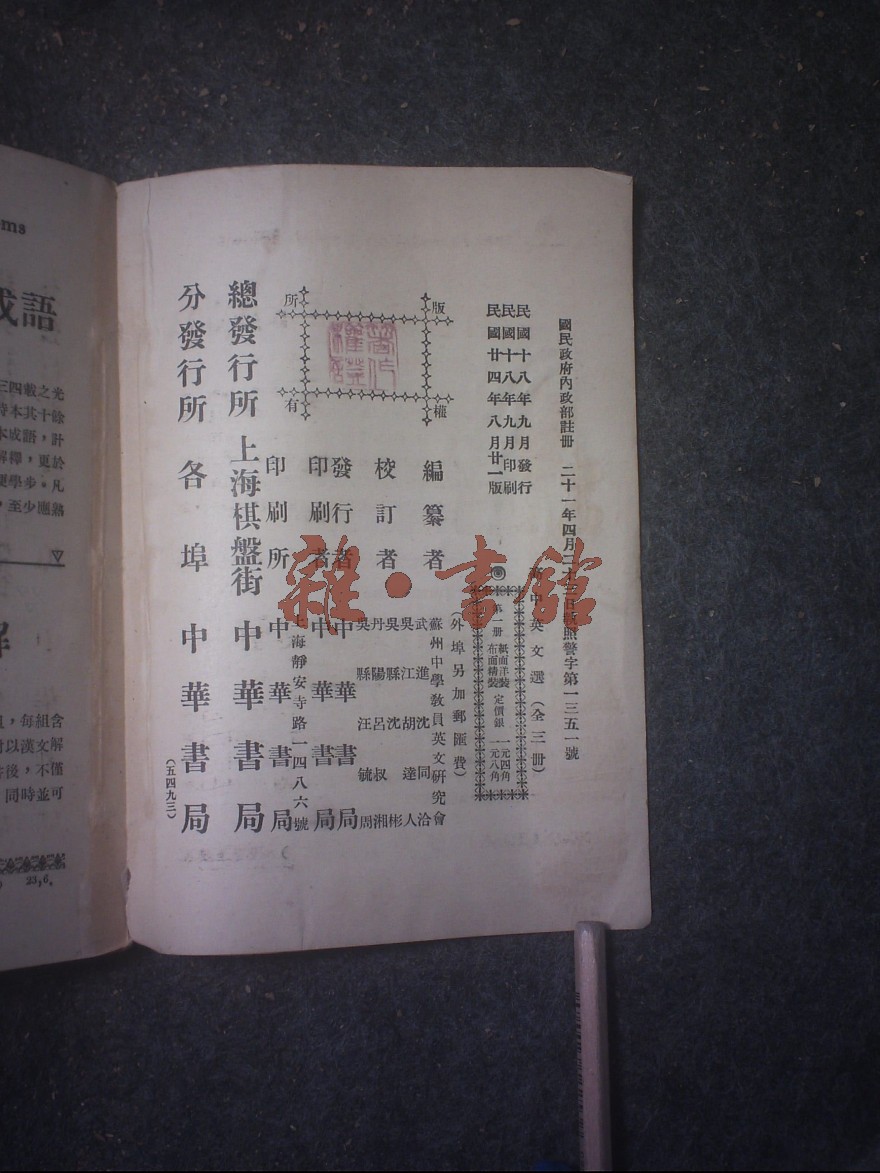 國民政府內政部註冊 二十一年四月二十 日執照警字第一三五一號
民國十八年九月發行
民國十八年九月印刷
民國廿四年八月廿一版
中英文選（全三冊）
第一冊 紙面洋裝 定價銀 一元四角
布面精裝 一元八角
（外埠另加郵匯費）
編纂者 蘇州中學教員英文研究會
校訂者
武進沈同洽
吳江胡達人
吳縣沈彬
丹陽呂叔湘
吳縣汪毓周
發行者 中華書局
印刷者 中華書局
上海靜安寺路一四八六號
印刷所 中華書局
總發行所 上海棋盤街 中華書局
分發行所 各埠 中華書局
（五四九三）
版權所有
著作權證
雜·書館
ms
成語
三四載之光
持本其十餘
本成語，計
解釋，更於
便學步。凡
，至少應熟
解
，每組含
可以漢文解
答後，不僅
，同時並可
23,6.